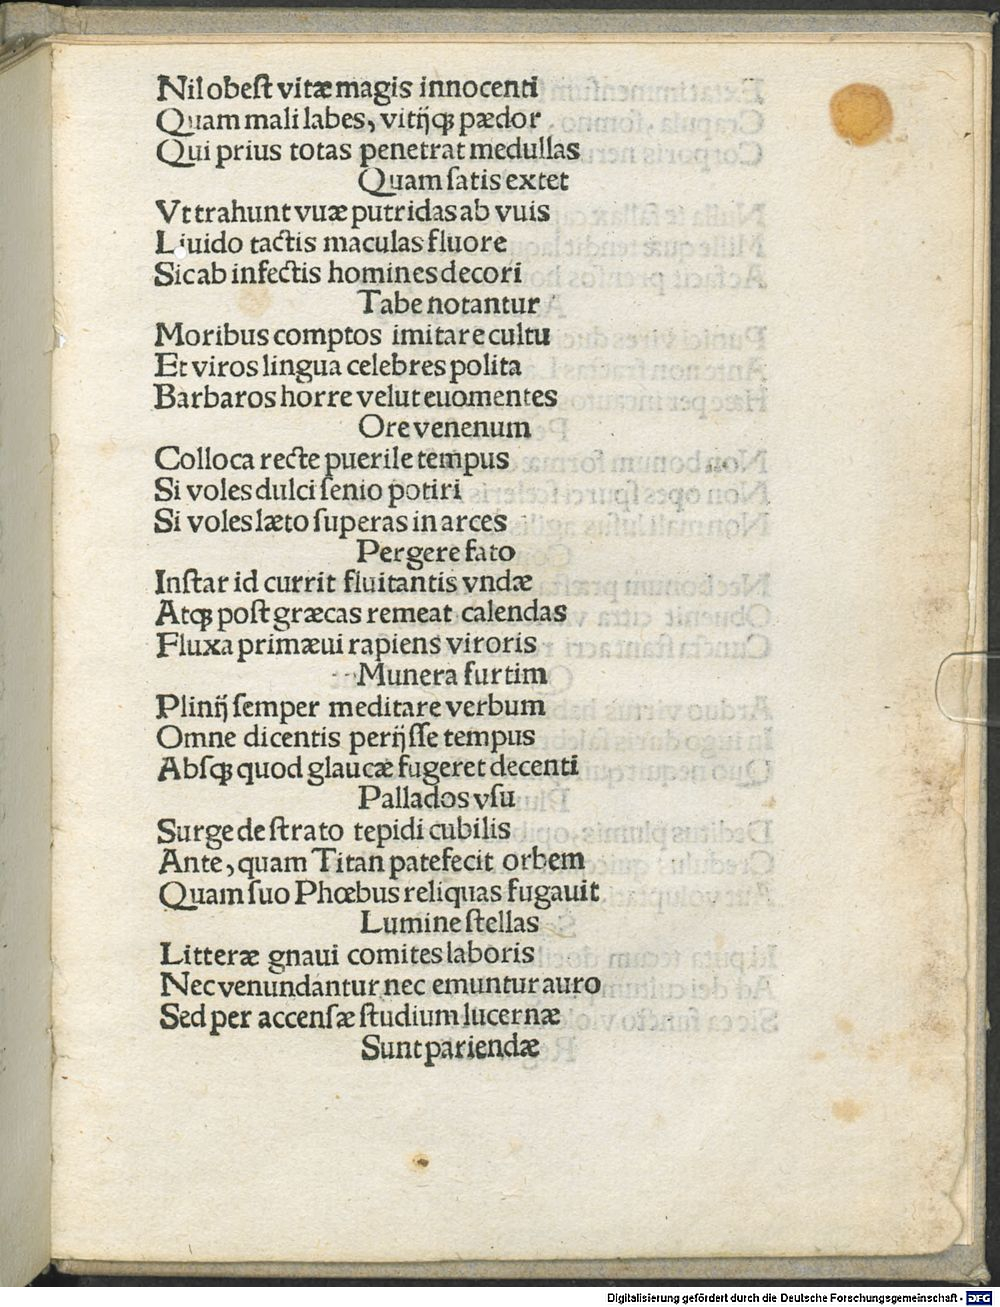 Nil obeſt vitæ magis innocenti
Quam mali labes, vitijqꝫ pædor
Qui prius totas penetrat medullas
Quam ſatis extet
Vt trahunt vuæ putridas ab vuis
Liuido tactis maculas fluore
Sic ab infectis homines decori
Tabe notantur
Moribus comptos imitare cultu
Et viros lingua celebres polita
Barbaros horre velut euomentes
Ore venenum
Colloca recte puerile tempus
Si voles dulci ſenio potiri
Si voles læto ſuperas in arces
Pergere fato
Inſtar id currit fluitantis vndæ
Atqꝫ poſt græcas remeat calendas
Fluxa primæui rapiens viroris
Munera furtim
Plinij ſemper meditare verbum
Omne dicentis perijſſe tempus
Abſqꝫ quod glaucæ fugeret decenti
Pallados vſu
Surge de ſtrato tepidi cubilis
Ante, quam Titan patefecit orbem
Quam ſuo Phœbus reliquas fugauit
Lumine ſtellas
Litteræ gnaui comites laboris
Nec venundantur nec emuntur auro
Sed per accenſæ ſtudium lucernæ
Sunt pariendæ
Digitalisierung gefördert durch die Deutsche Forschungsgemeinschaft - DFG